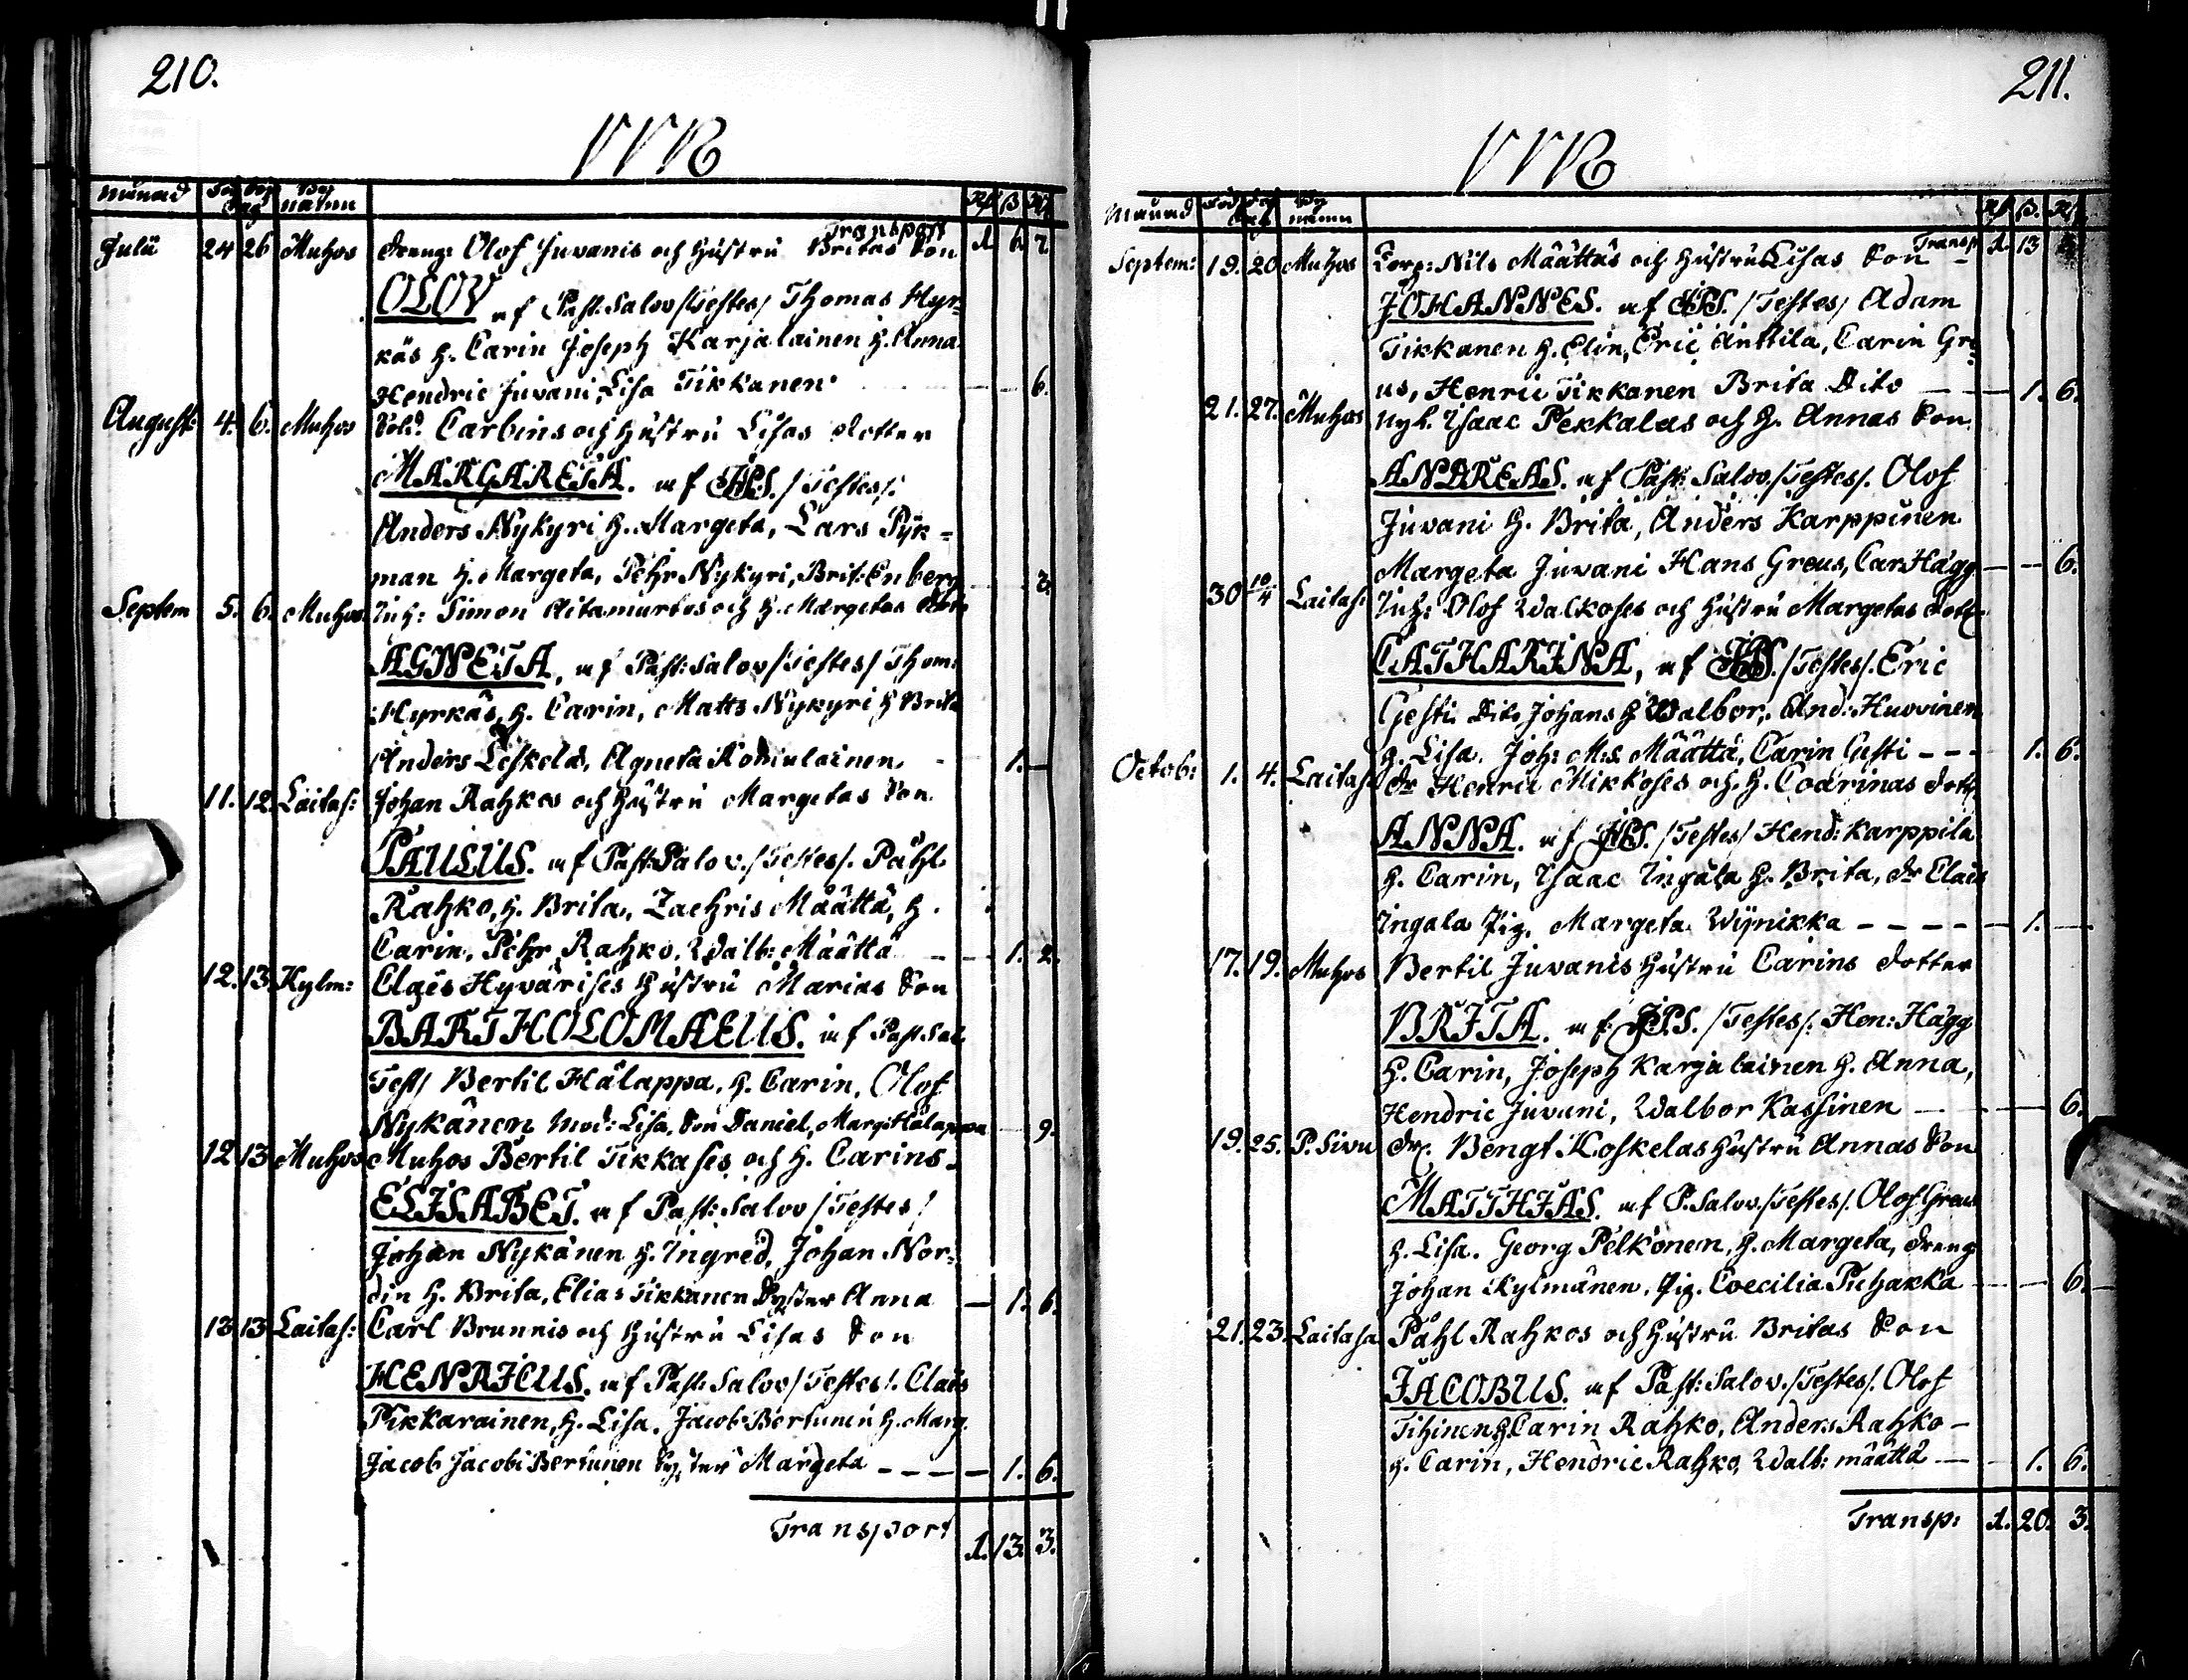 210.
1772
Månad Född Döp Dag By namn Rd ß Rs
Transport 1. 6. 7.
Julii 24 26 Muhos Dreng: Olof Juvanis och Hustru Britas Son
OLOV af Past: Salov /Testes/ Thomas Hyr=
käs H. Carin Joseph Karjalainen H. Anna
Hendric Juvani, Lisa Tikkanen 6.
August: 4. 6. Muhos Sold. Carbins och Hustru Lisas dotter
MARGARETA. af /Testes/:
Anders Nykyri H. Margeta, Lars Pyk=
man H. Margeta, Pehr Nykyri, Brit: Enberg 3.
Septem 5. 6. Muhos Inh: Simon Aitamurtos och H. Margetas dott
AGNETA, af Past: Salov /Testes/ Thom:
Hyrkäs, H. Carin, Matts Nykyri H Brita
Anders Leskelä, Agneta Komulainen. 1. —
11. 12. Laitas: Johan Rahkos och Hustru Margetas Son
PAULUS. af Past: Salov. /Testes/. Påhl
Rahko, H. Brita, Zachris Määttä, H.
Carin, Pehr Rahko, Walb: Määttä 1. 2.
12. 13. Kylm: Claës Hyvärises Hustru Marias Son
BARTHOLOMÆUS. af Past. Sal.
Test/ Bertil Hälappa, H. Carin, Olof
Nykänen Mod: Lisa, Son Daniel, Marg: Hälappa 9.
12 13 Muhos Muhos Bertil Tikkases och H. Carins
ELISABET. af Past: Salov /Testes/
Johan Nykänen H. Ingred, Johan Nor=
din H. Brita, Elias Tikkanen Syster Anna — 1. 6.
13 13 Laitas: Carl Brunnis och Hustru Lisas Son
HENRICUS. af Past: Salov /Testes/. Claës
Pikkarainen, H. Lisa, Jacob Bertunen H. Marg.
Jacob Jacobi Bertunen Syster Margeta — 1. 6.
Transport 1. 13. 3.
211.
1772
Månad Född Döp Dag By namn Rd ß. Rs
Transp 1. 13
Septem: 19. 20 Muhos Corp: Nils Määttäs och Hustru Lisas Son
JOHANNES. af /Testes/ Adam
Tikkanen H. Elin, Eric Anttila, Carin Gre=
us, Henric Tikkanen Brita Dito — 1. 6.
21. 27. Muhos Nyb. Isaac Pekkalas och H. Annas Son
ANDREAS. af Past: Salov. /Testes/. Olof
Juvani H. Brita, Anders Karppinen
Margeta Juvani Hans Greus, Car: Hägg — 6.
30 10/4 Laitas: Inh: Olof Walkoses och Hustru Margetas dott
CATHARINA, af /Testes/. Eric
Gesti Dito Johans H Walbor, And: Huovinen
H. Lisa. Joh: M:s Määttä, Carin Gesti — 1. 6.
Octob: 1. 4. Laitas: Dr Henric Mikkoses och H. Coarinas dott
ANNA. af /Testes/ Hend: Karppila
H. Carin, Isaac Ingäla H. Brita, Dr Claës
Ingala Pig. Margeta Wijnikka — 1. —
17. 19. Muhos Bertil Juvanis Hustru Carins dotter
BRITA. af /Testes/. Hen: Hägg
H. Carin, Joseph Karjalainen H. Anna,
Hendric Juvani, Walbor Kassinen — 6.
19. 25. P. Sivu Dr. Bengt Koskelas Hustru Annas Son
MATTHIAS. af P. Salov. /Testes/. Olof Greus
H. Lisa. Georg Pelkonen, H. Margeta, Dreng
Johan Kylmänen, Pig. Coecilia Puhakka — 6.
21. 23. Laitasa Påhl Rahkos och Hustru Britas Son
JACOBUS. af Past: Salov. /Testes/. Olof
Tihinen H. Carin Rahko, Anders Rahko —
H. Carin, Hendric Rahko, Walb: määttä — 1. 6.
Transp: 1. 20. 3.